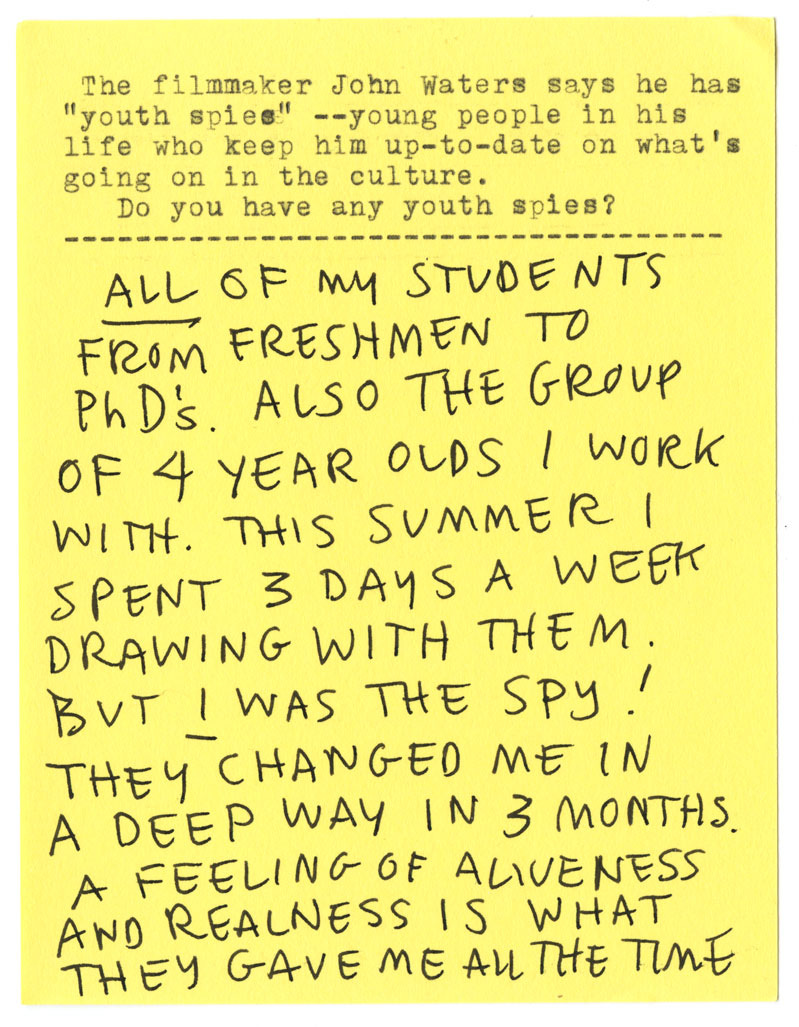 The filmmaker John Waters says he has
"youth spies" --young people in his
life who keep him up-to-date on what's
going on in the culture.
Do you have any youth spies?
------------------------------------
ALL OF MY STUDENTS
FROM FRESHMEN TO
PhD's. ALSO THE GROUP
OF 4 YEAR OLDS I WORK
WITH. THIS SUMMER I
SPENT 3 DAYS A WEEK
DRAWING WITH THEM.
BUT I WAS THE SPY!
THEY CHANGED ME IN
A DEEP WAY IN 3 MONTHS.
A FEELING OF ALIVENESS
AND REALNESS IS WHAT
THEY GAVE ME ALL THE TIME